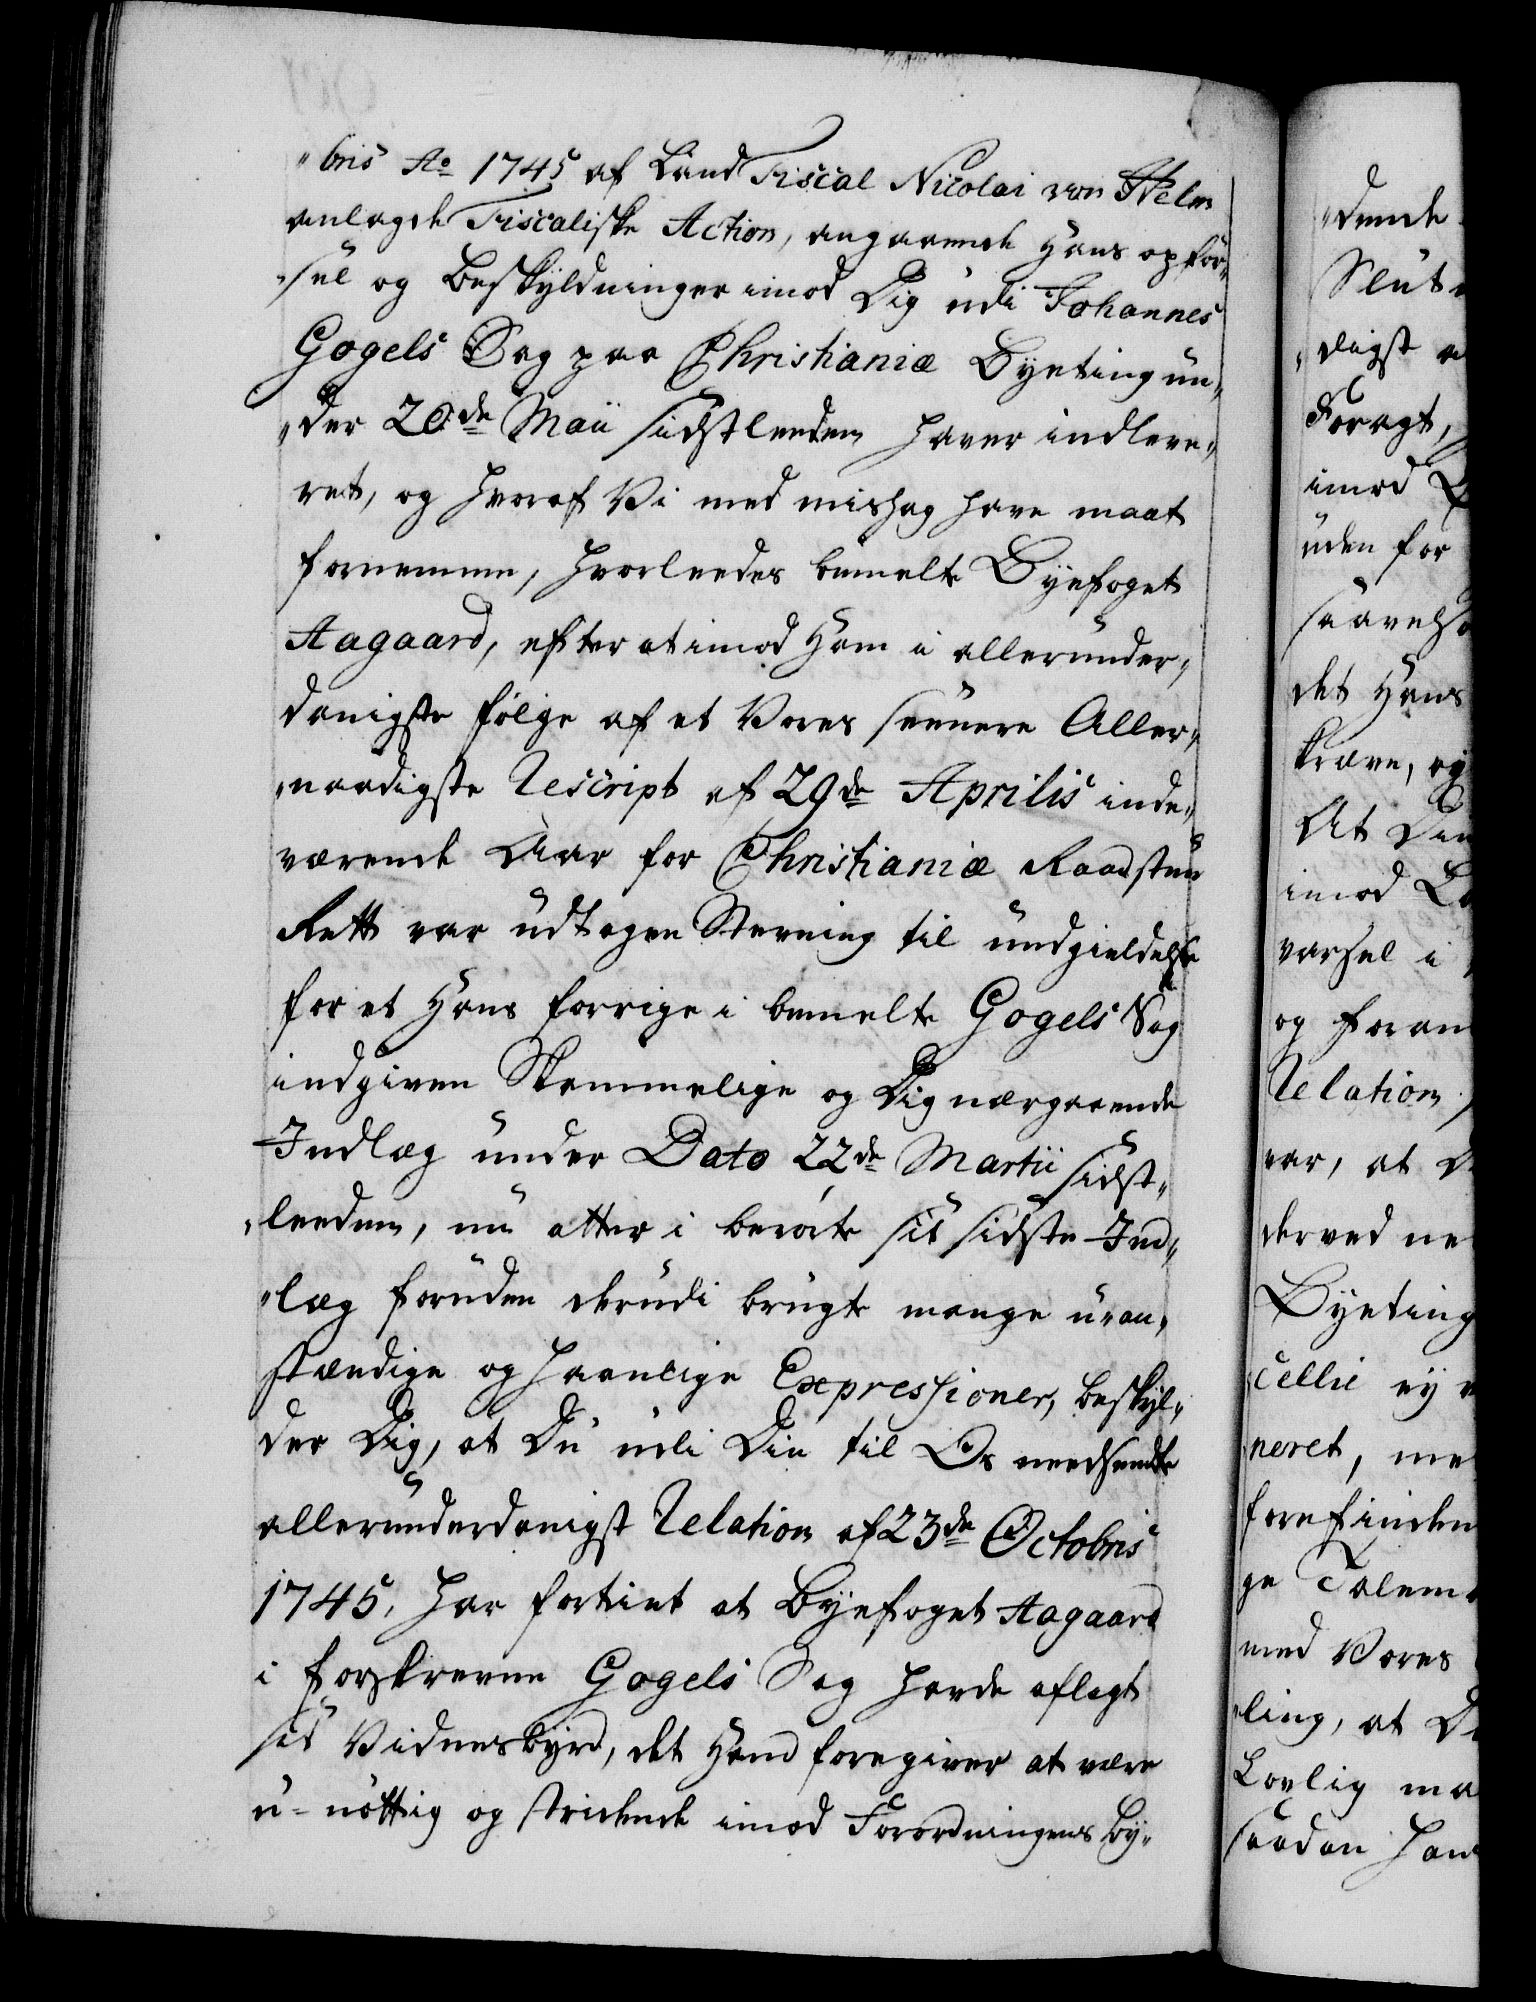 "bris Ao 1745 af Land Fiscal Nicolai von
anlagde Fiscaliske Action, angaaende Hans opför„
„sel og Beskyldninger imod Dig udi Johannes
Gogels Sag paa Christianiæ Byeting un„
„der 20de Maii sidstleeden haver indleve„
ret, og hvoraf Vi med mishag have maat
fornemme, hvorleedes bemelte Byefoget
Aagaard, efter at imod Ham i allerunder„
danigste fölge af et Vores seenere Aller„
„naadigste Rescript af 29de Aprilis inde„
værende Aar for Christianiæ Raadstue
Rett var udtagen Stevning til undgieldelse
for et Hans forrige i bemelte Gogels Sag
indgiven Skammelige og Dig nærgaaende
Indlæg under Dato 22de Martii sidst„
„leeden, nu atter i berörte sit sidste Ind„
„læg foruden derudi brugte mange u-an„
stændige og haanlige Expressioner, beskyl„
der Dig, at Du udi Din til Os needsendte
allerunderdanigst Relation af 23de Octobris
1745, har fortiet at Byefoget Aagaard
i forskrevne Gogels Sag havde aflagt
sit Vidnesbyrd, det Hand foregiver at være
u-nöttig og stridende imod Forordningens by„
„dende
Slut
„digst
Foragt,
imod
uden for
saavelso
det Hans
kræve, og
At Din
imod
varsel i
og foran
Relation
var, at
derved ne
Byeting
cellie ey
neret, me
forefinden
ge
med Vores
„ling, at
Lovlig ma
saadan han